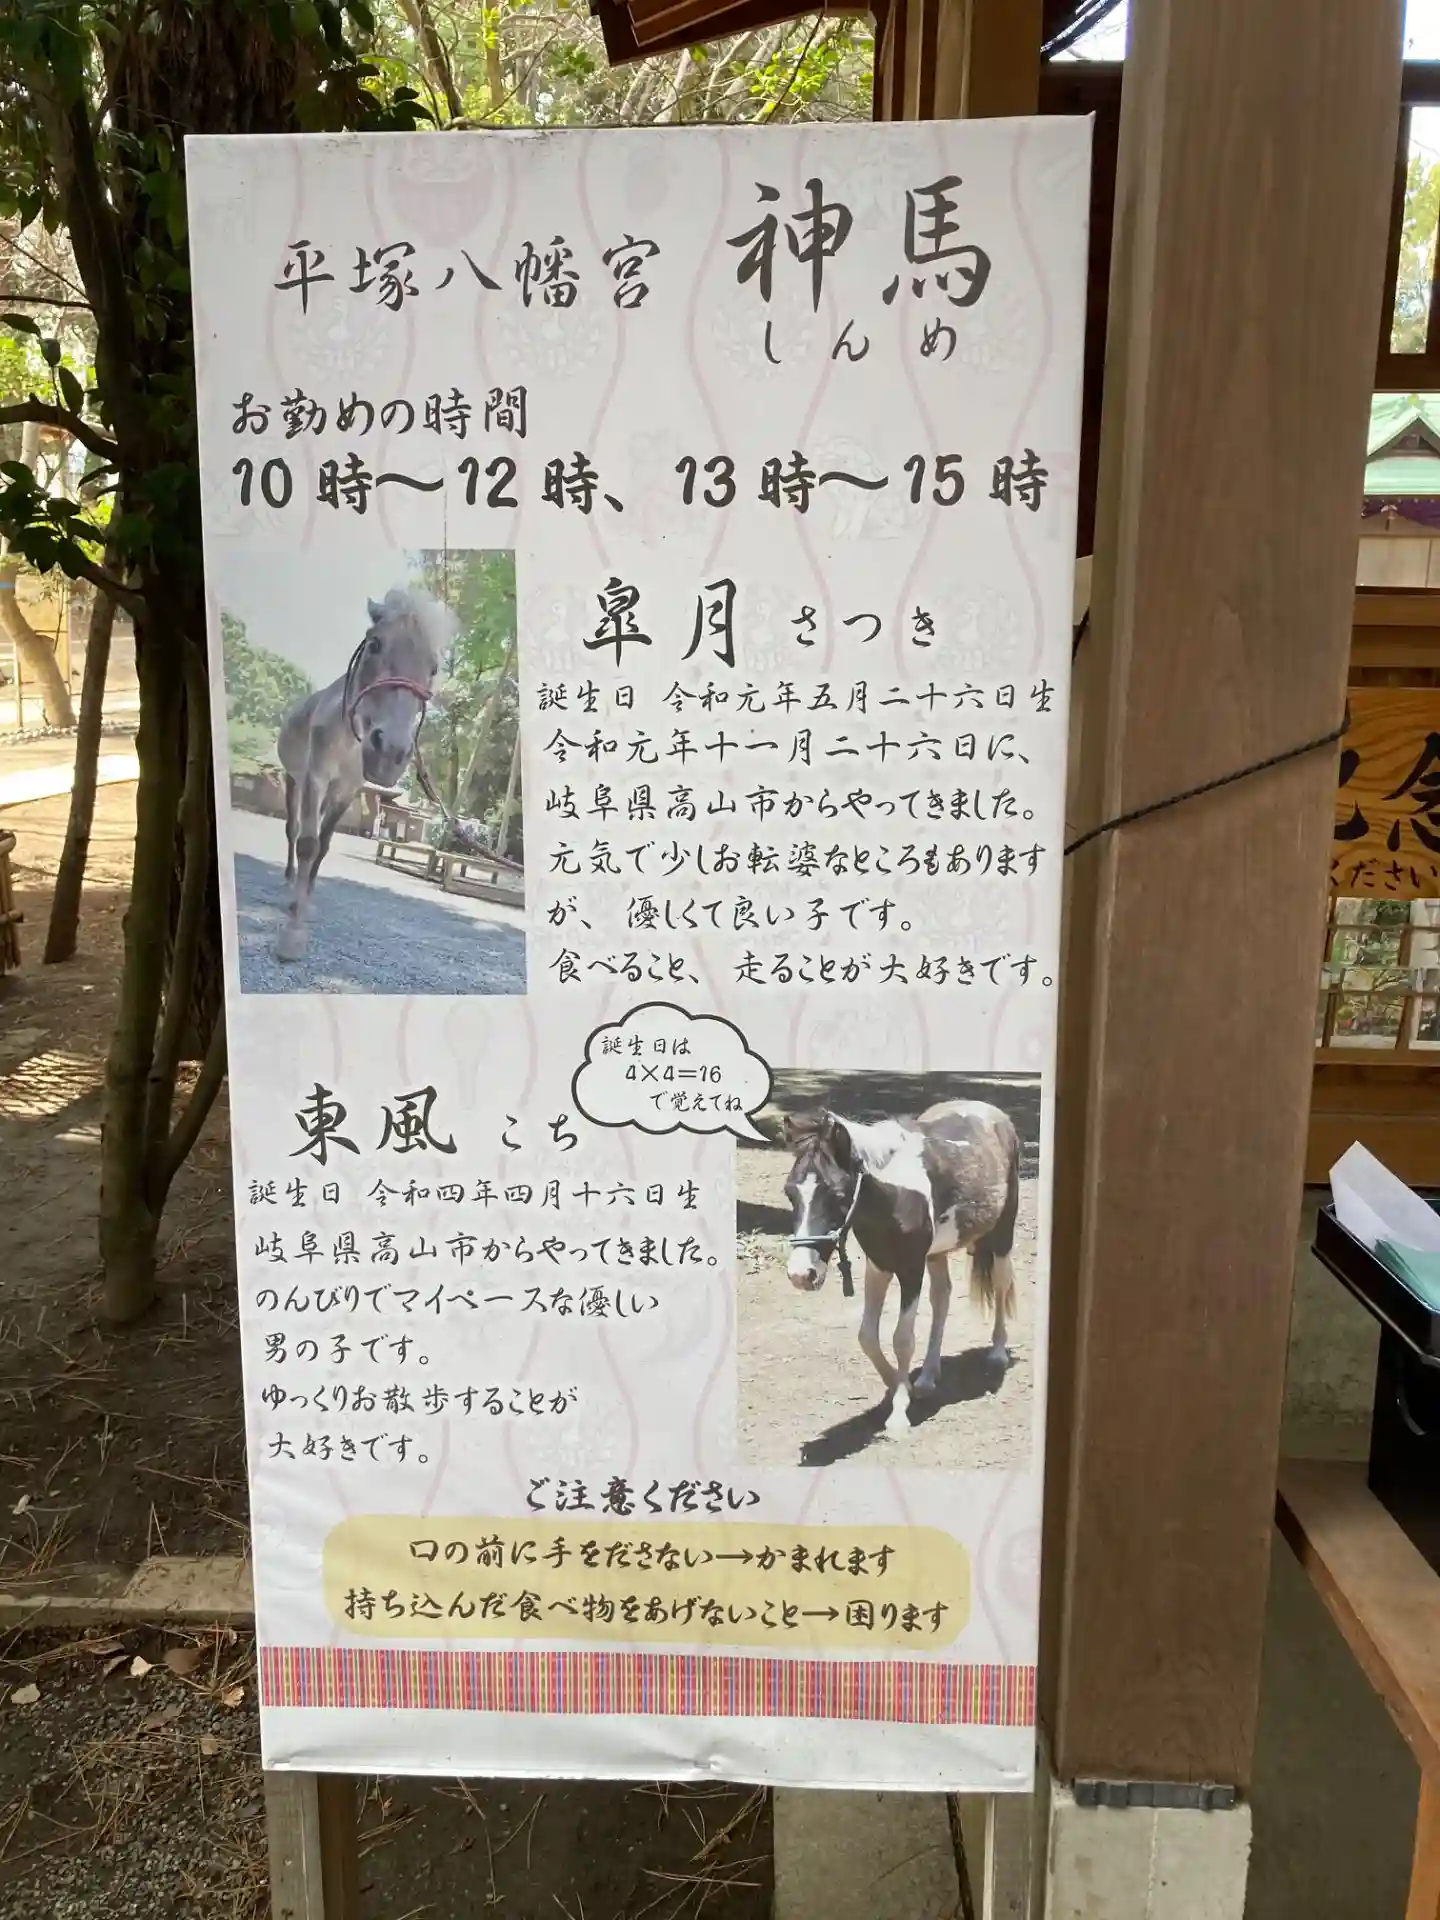 平塚八幡宮 神馬
しんめ
お勤めの時間
10時〜12時、13時〜15時
皐月 さつき
誕生日 令和元年五月二十六日生
令和元年十一月二十六日に、
岐阜県高山市からやってきました。
元気で少しお転婆なところもあります
が、優しくて良い子です。
食べること、走ることが大好きです。
誕生日は
4×4=16
で覚えてね
東風 こち
誕生日 令和四年四月十六日生
岐阜県高山市からやってきました。
のんびりでマイペースな優しい
男の子です。
ゆっくりお散歩することが
大好きです。
ご注意ください
口の前に手をださない→かまれます
持ち込んだ食べ物をあげないこと→困ります
ください